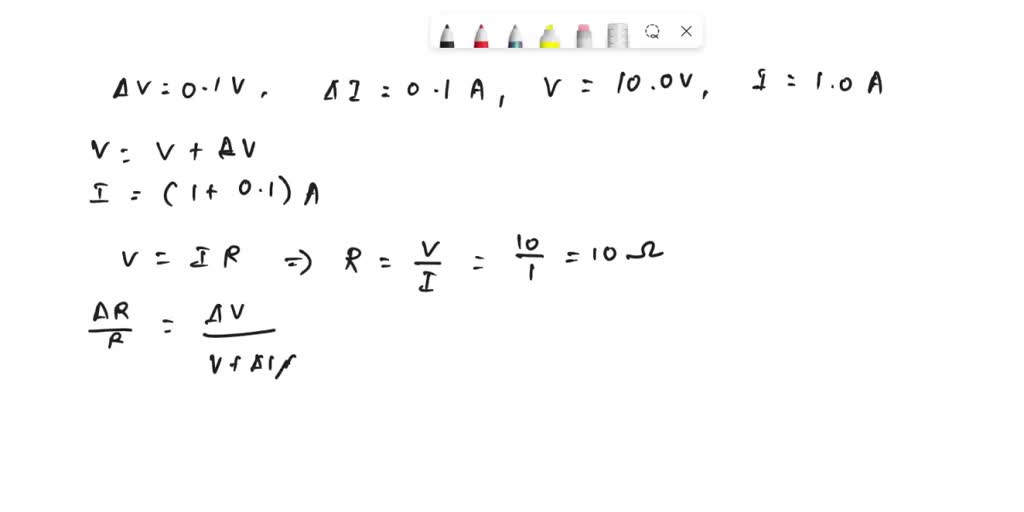 ΔV = 0.1 V, ΔI = 0.1 A, V = 10.0V, I = 1.0 A
V = V + ΔV
I = (1 + 0.1) A
V = I R ⇒ R = V/I = 10/1 = 10 Ω
ΔR/R = ΔV/V+Δ